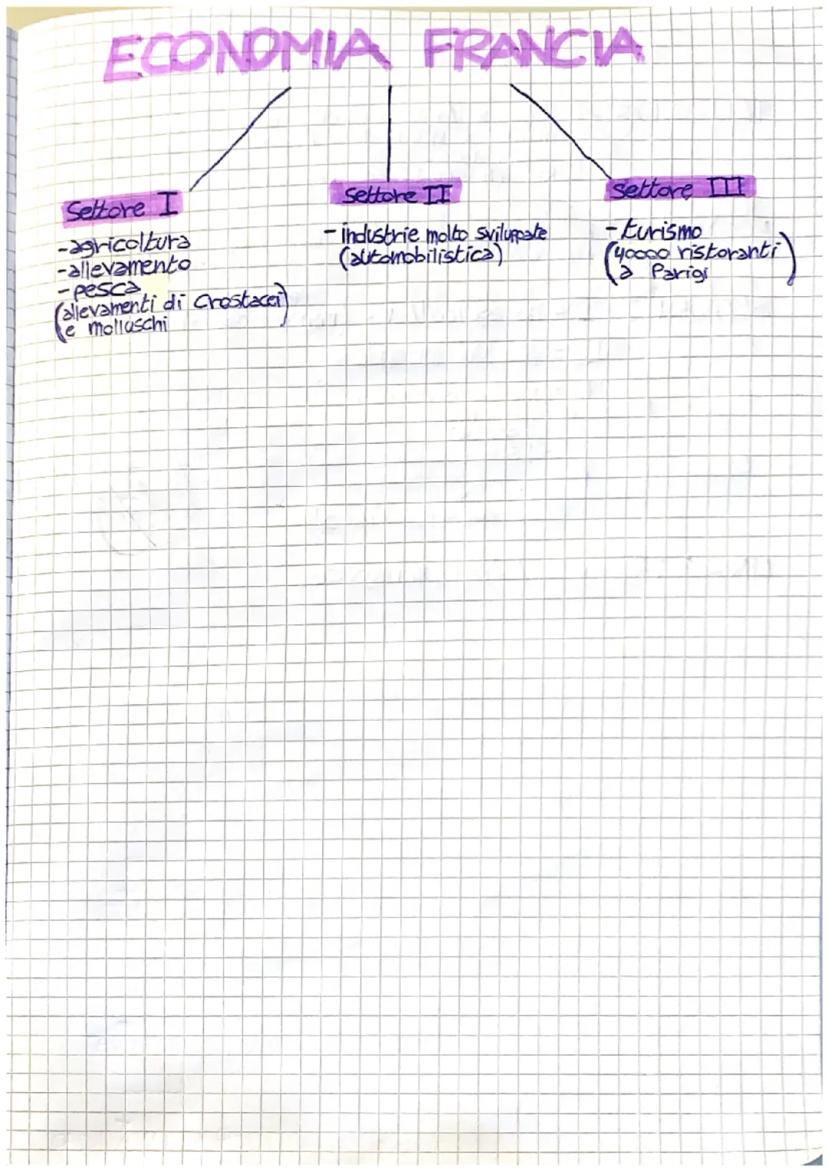 ECONOMIA FRANCIA
Settore I
-agricoltura
-allevamento
-pesca
(allevamenti di Crostacei)
e molluschi
Settore II
- industrie molto sviluppate
(automobilistica)
Settore III
- turismo
(40000 ristoranti)
a Parigi